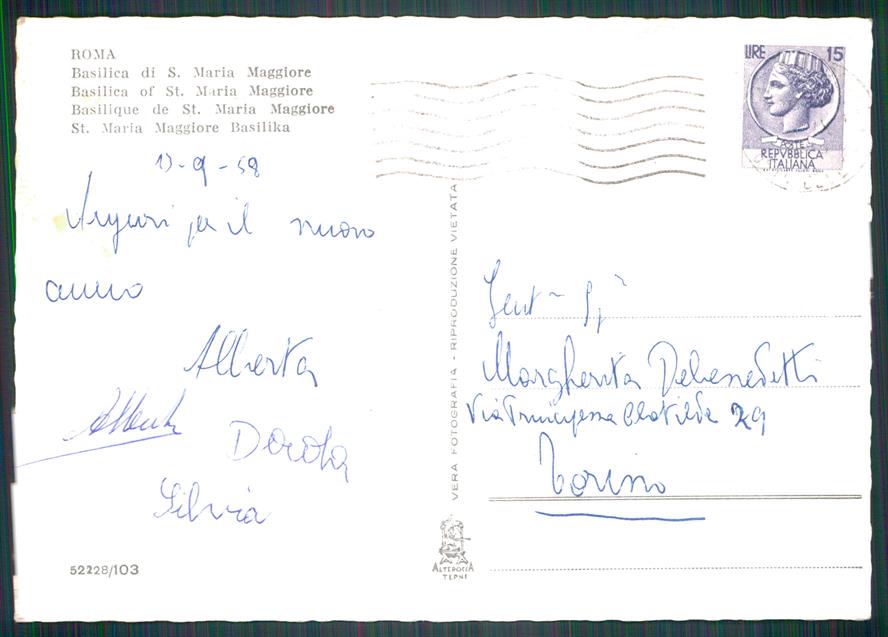 ROMA
Basilica di S. Maria Maggiore
Basilica of St. Maria Maggiore
Basilique de St. Maria Maggiore
St. Maria Maggiore Basilika
LIRE 15
POSTE
REPVBBLICA
ITALIANA
Auguri per il nuovo
anno
Alberta
Silvia
52228/103
VERA FOTOGRAFIA - RIPRODUZIONE VIETATA
ALTEROCCA
TERNI
Margherita Debenedetti
Via Principessa Clotilde 29
Torino